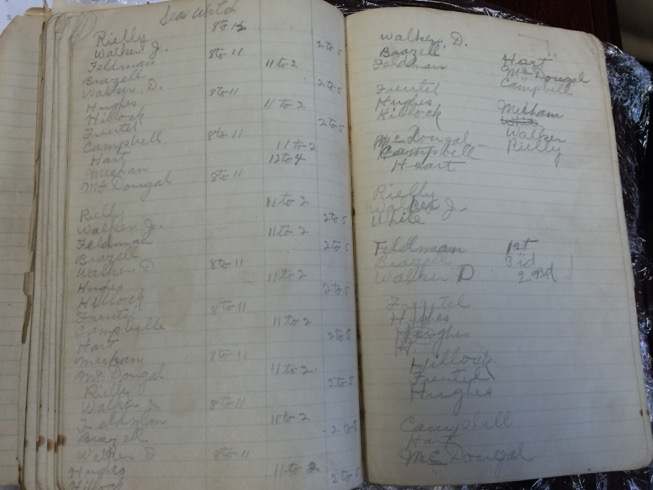 Sea Watch
Rielly 8 to 12
Walker J. 2 to 5
Feldman 8 to 11
Brazell 11 to 2
Walker, D. 2 to 5
Hughes 8 to 11
Hillock 11 to 2
Fuentel 2 to 5
Campbell 8 to 11
Hart 11 to 2
Meehan 12 to 4
Mc Dougal 8 to 11
Rielly 11 to 2
Walker J. 2 to 5
Feldman 11 to 2
Brazell 2 to 5
Walker D 8 to 11
Hughes 11 to 2
Hillock 2 to 5
Fuentel 8 to 11
Campbelle 11 to 2
Hart 2 to 5
Meehan 8 to 11
Mc Dougal 11 to 2
Rielly 2 to 5
Walker J 8 to 11
Feldman 11 to 2
Brazell 2 to 5
Walker D 8 to 11
Hughes 11 to 2
Hillock 2 to 5
Walker, D.
Brazell Hart
Feldman Mc Dougal
Campbell
Fuentel
Hughes Meehan
Hillock
Walker
Mc Dougal Rielly
Campbell
Heart
Rielly
J.
White
Feldman 1st
Brazell 3rd
Walker D 2nd
Fuentel
Hughes
Hillock
Fuentel
Hughes
Campbell
Hart
Mc Dougal